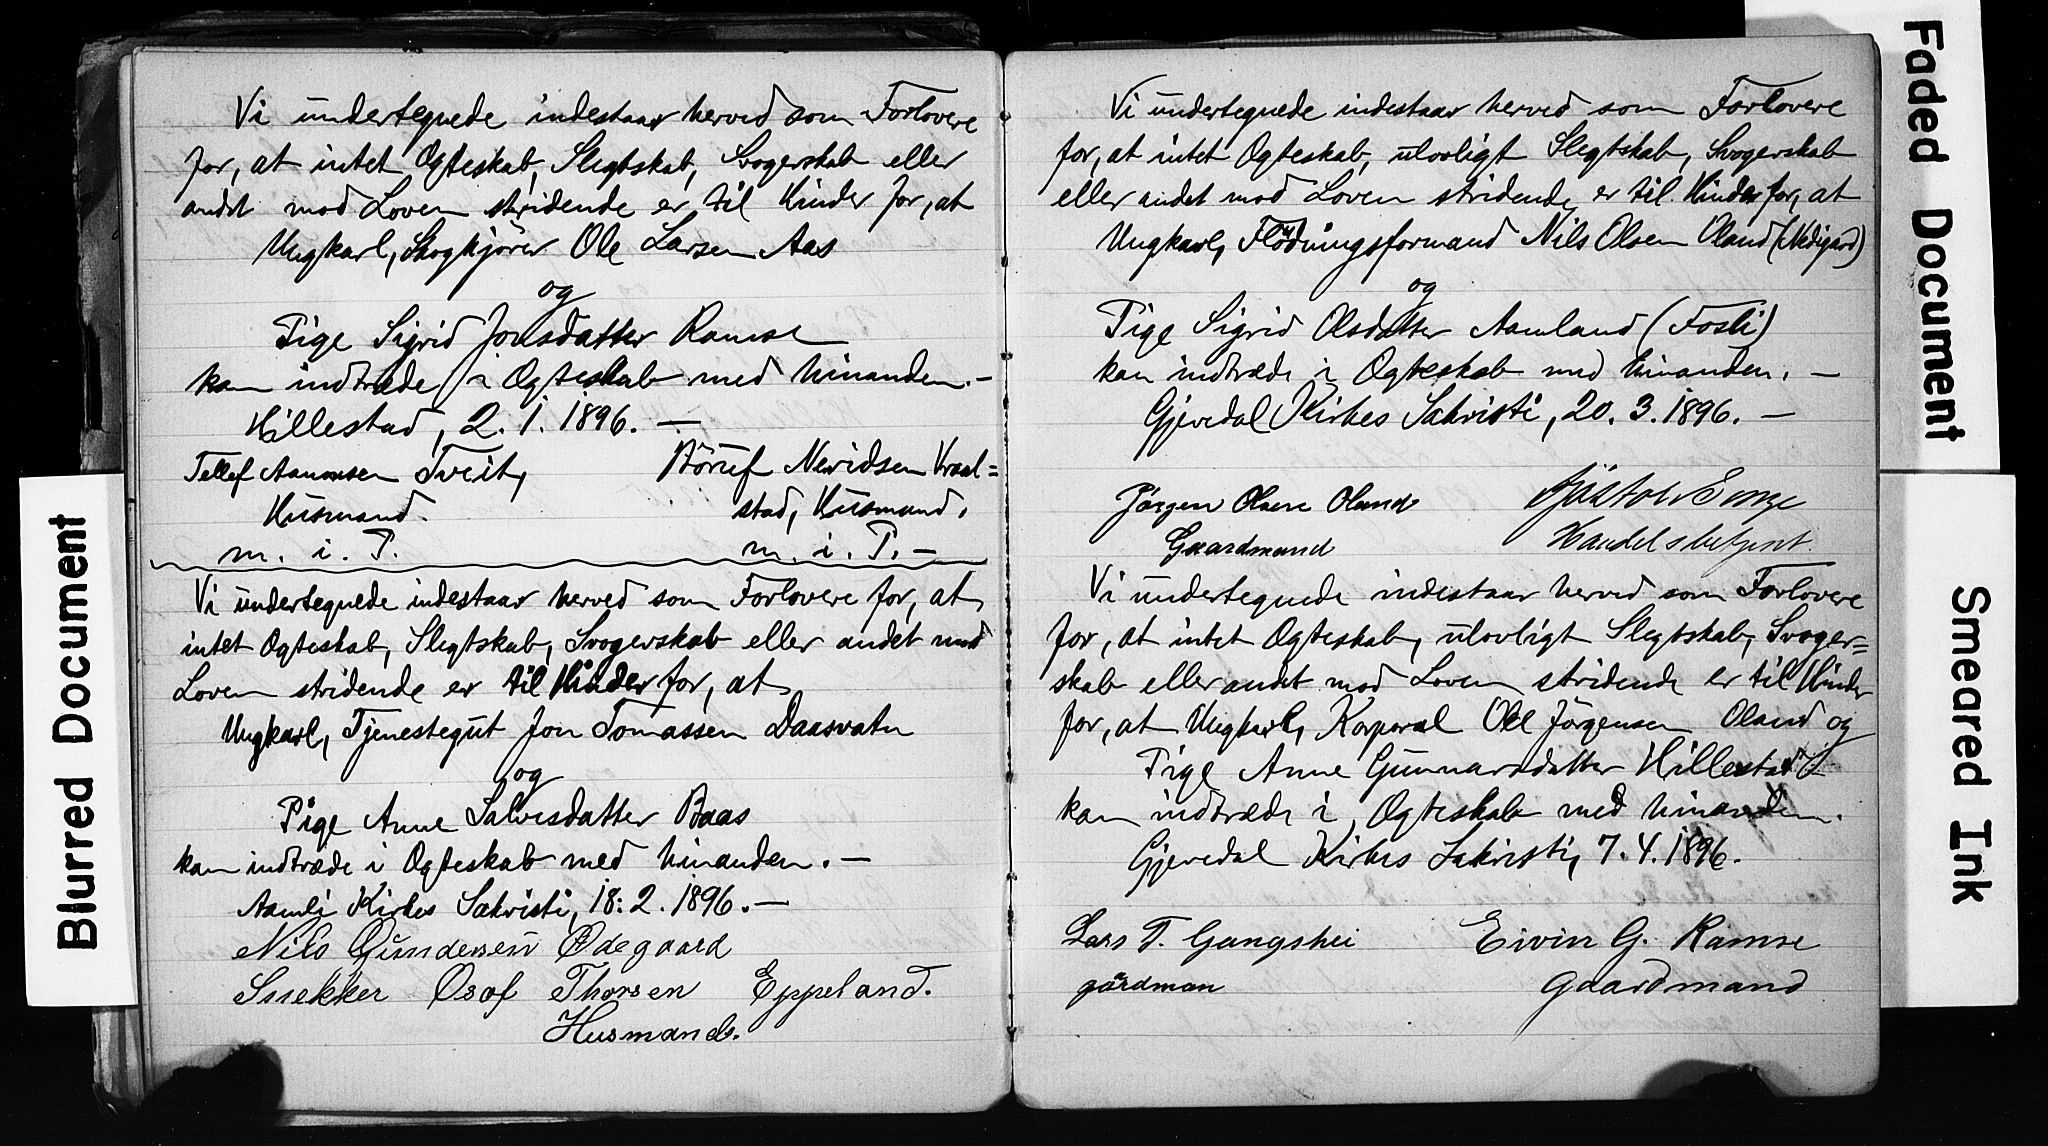 Vi undertegnede indestaar herved som Forlovere
for, at intet Ægteskab, Slegtskab, Svogerskab eller
andet mod Loven stridende er til Hinder for, at
Ungkarl, Skogkjører Ole Larsen Aas
og
Pige Sigrid Jonsdatter Ramse
kan indtræde i Ægteskab med hinanden. –
Hillestad, 2. 1. 1896. –
Tellef Aanonsen Tveit, Husmand. m. i. P.
Neridsen Vraal=
stad, Husmand, m. i. P. –
Vi undertegnede indestaar herved som Forlovere for, at
intet Ægteskab, Slegtskab, Svogerskab eller andet mod
Loven stridende er til Hinder for, at
Ungkarl, Tjenestegut Jon Tomassen Daasvatn
og
Pige Anne Salvesdatter Baas
kan indtræde i Ægteskab med hinanden. –
Aamli Kirkes Sakristi, 18. 2. 1896. –
Nils Gundersen Ødegaard
Snekker Osof Thorsen Eppeland.
Husmand.
Vi undertegnede indestaar herved som Forlovere
for, at intet Ægteskab, ulovligt Slegtskab, Svogerskab
eller andet mod Loven stridende er til Hinder for, at
Ungkarl, Flødningsformand Nils Olsen Øland (Nedigard)
og
Pige Sigrid Olsdatter Aamland (Fosli)
kan indtræde i Ægteskab med hinanden. –
Gjevedal Kirkes Sakristi, 20. 3. 1896. –
Jørgen Olsen Øland
Gaardmand
Handelsbetjent.
Vi undertegnede indestaar herved som Forlovere
for, at intet Ægteskab, ulovligt Slegtskab, Svoger=
skab eller andet mod Loven stridende er til Hinder
for, at Ungkarl, Korporal Ole Jørgensen Øland og
Pige Anne Gunnarsdatter Hillestad
kan indtræde i Ægteskab med hinanden.
Gjevedal Kirkes Sakristi, 7. 4. 1896.
Lars T. Gangshei
gårdman
Eivin G. Ramse
Gaardmand
Blurred Document
Faded Document
Smeared Ink